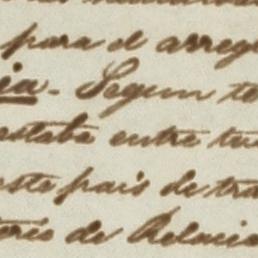 para el arreg
ia. - Segun te
estaba entre tu
este pais de tra
torio de Relacio